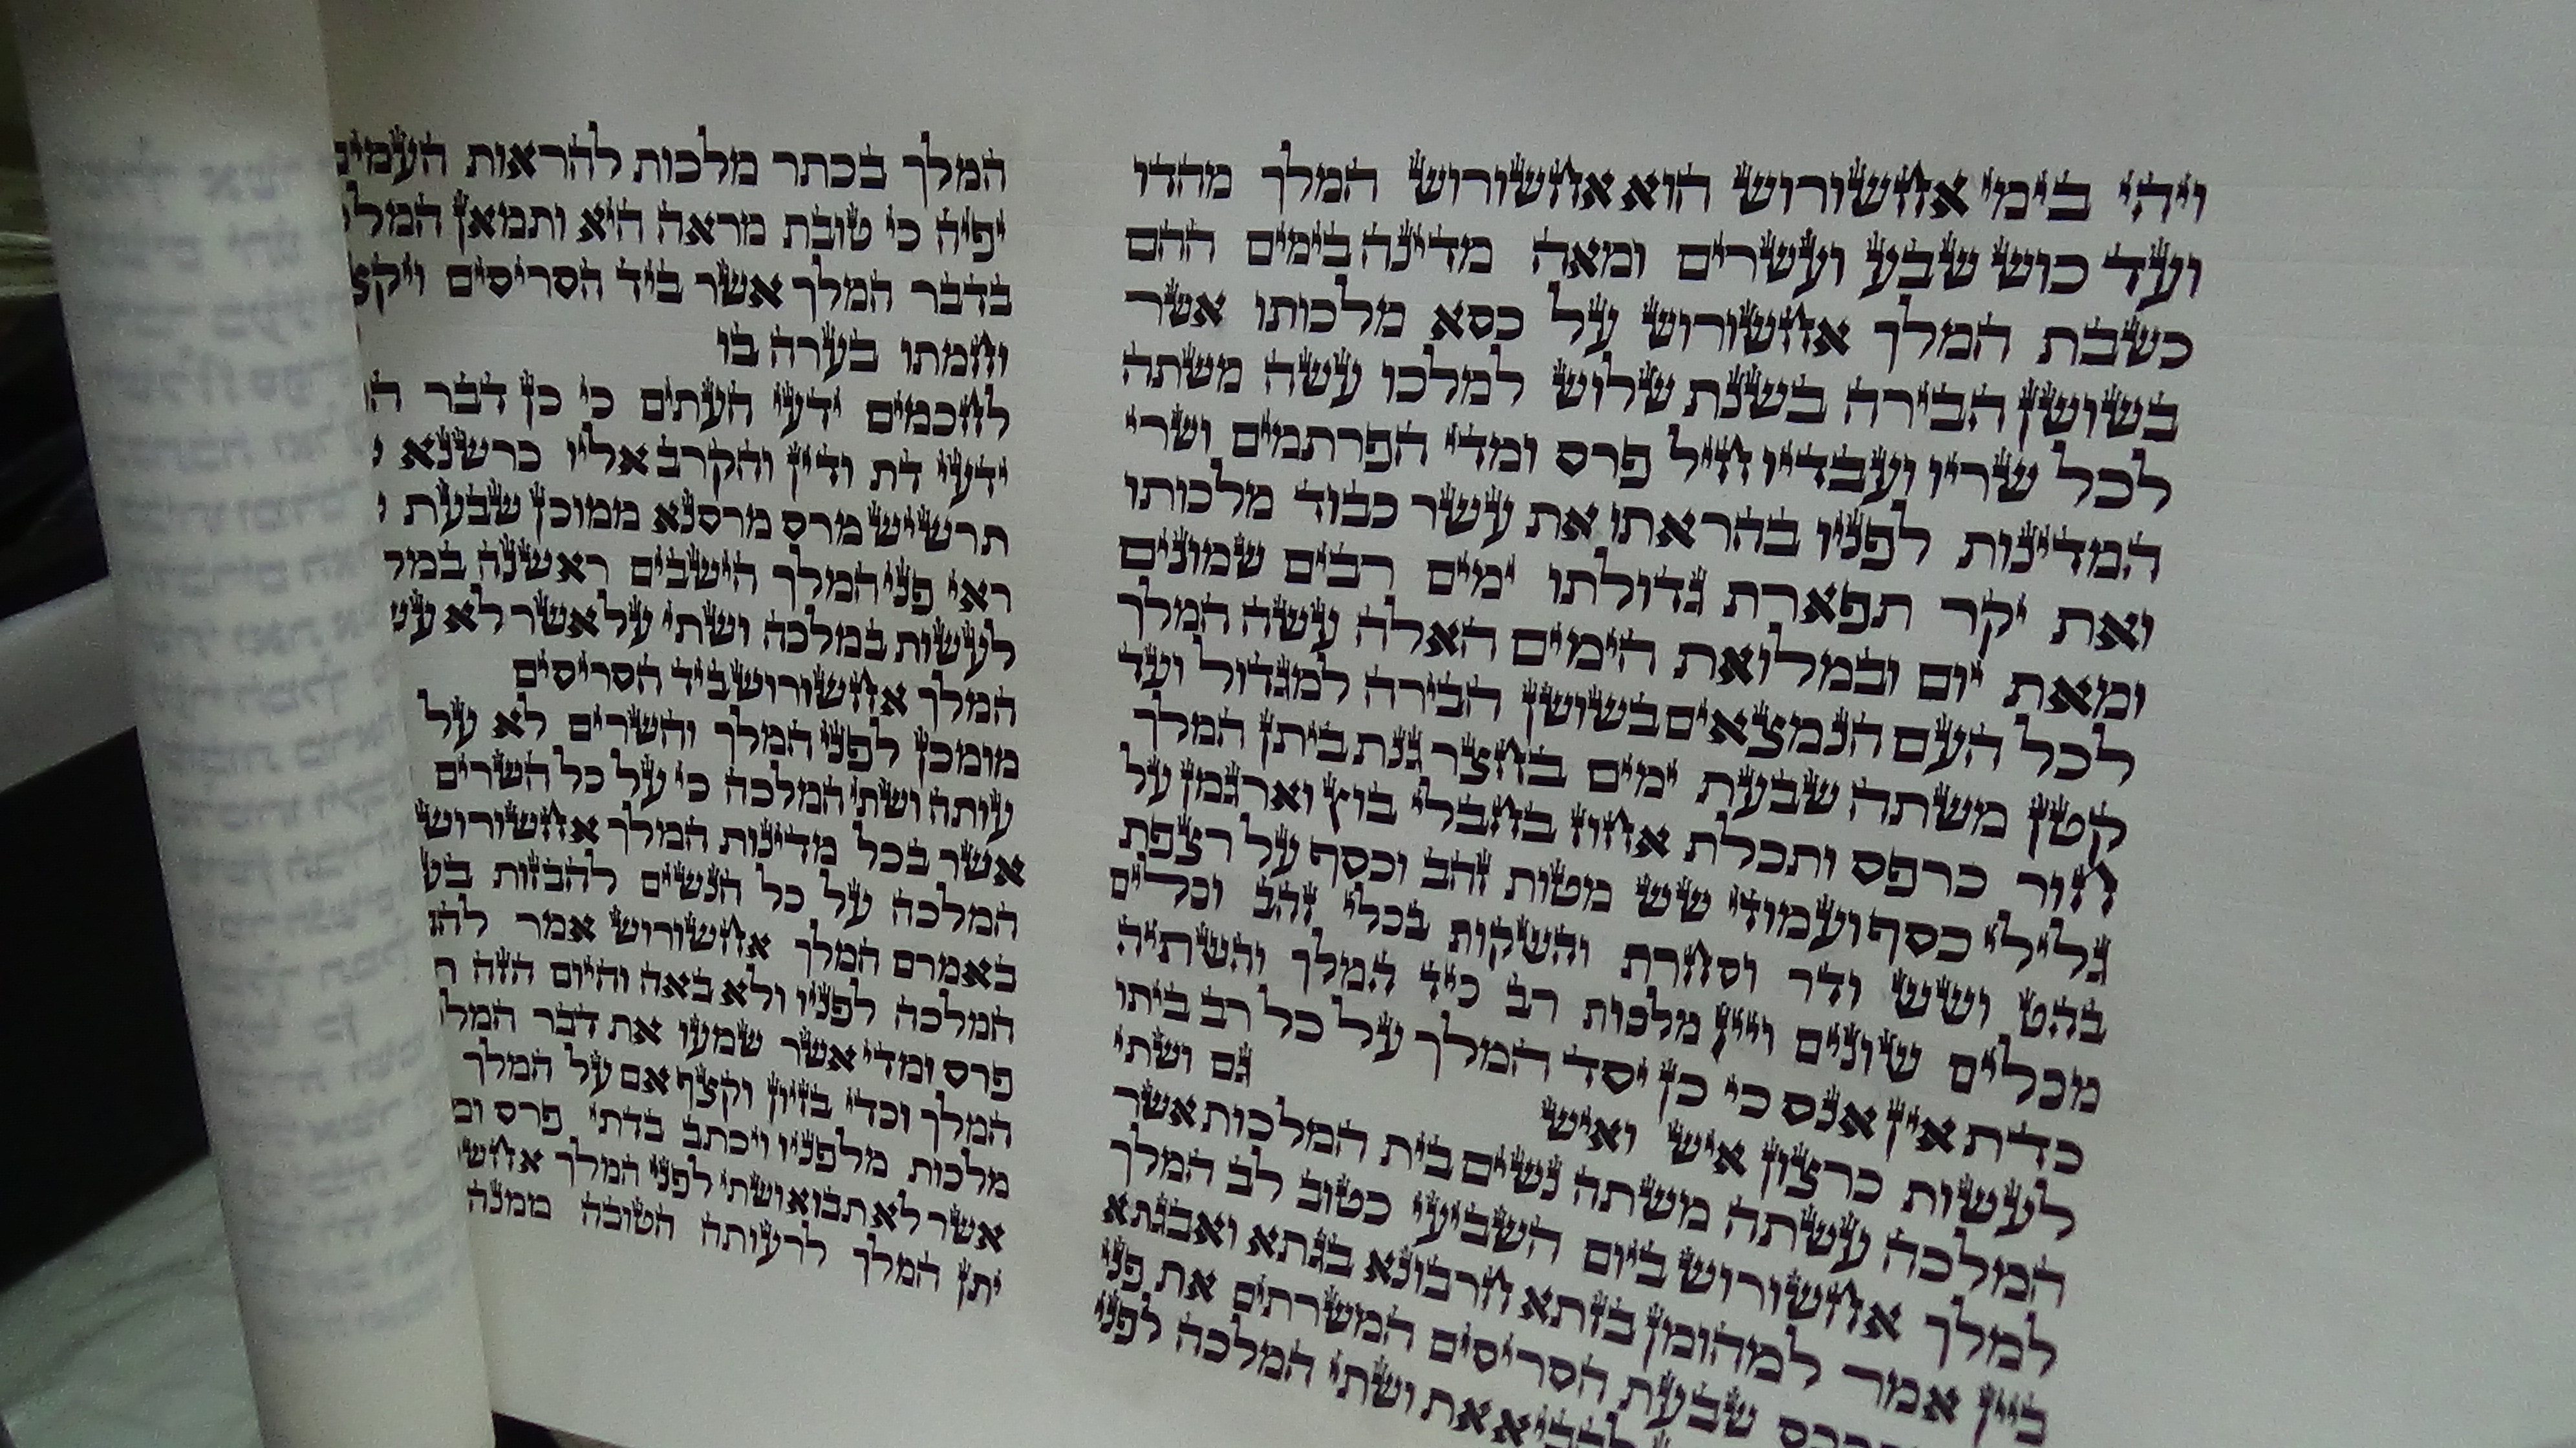 ויהי בימי אחשורוש הוא אחשורוש המלך מהדו
ועד כוש שבע ועשרים ומאה מדינה בימים ההם
כשבת המלך אחשורוש על כסא מלכותו אשר
בשושן הבירה בשנת שלוש למלכו עשה משתה
לכל שריו ועבדיו חיל פרס ומדי הפרתמים ושרי
המדינות לפניו בהראתו את עשר כבוד מלכותו
ואת יקר תפארת גדולתו ימים רבים שמונים
ומאת יום ובמלואת הימים האלה עשה המלך
לכל העם הנמצאים בשושן הבירה למגדול ועד
קטן משתה שבעת ימים בחצר גנת ביתן המלך
חור כרפס ותכלת אחוז בחבלי בוץ וארגמן על
גלילי כסף ועמודי שש מטות זהב וכסף על רצפת
בהט ושש ודר וסחרת והשקות בכלי זהב וכלים
מכלים שונים ויין מלכות רב כיד המלך והשתיה
כדת אין אנס כי כן יסד המלך על כל רב ביתו
לעשות כרצון איש ואיש גם ושתי
המלכה עשתה משתה נשים בית המלכות אשר
למלך אחשורוש ביום השביעי כטוב לב המלך
ביין אמר למהומן בזתא חרבונא בגתא ואבגתא
שבעת הסריסים המשרתים את פני
להביא את ושתי המלכה לפני
המלך בכתר מלכות להראות העמים
יפיה כי טובת מראה היא ותמאן המל
בדבר המלך אשר ביד הסריסים ויקצ
וחמתו בערה בו
לחכמים ידעי העתים כי כן דבר
ידעי דת ודין והקרב אליו כרשנא
תרשיש מרס מרסנא ממוכן שבעת
ראי פני המלך הישבים ראשנה במל
לעשות במלכה ושתי על אשר לא עש
המלך אחשורוש ביד הסריסים
מומכן לפני המלך והשרים לא על
עותה ושתי המלכה כי על כל השרים
אשר בכל מדינות המלך אחשורוש
המלכה על כל הנשים להבזות בע
באמרם המלך אחשורוש אמר לה
המלכה לפניו ולא באה והיום הזה ת
פרס ומדי אשר שמעו את דבר המל
המלך וכדי בזיון וקצף אם על המלך
מלכות מלפניו ויכתב בדתי פרס ומ
אשר לא תבוא ושתי לפני המלך אחשו
יתן המלך לרעותה הטובה ממנה